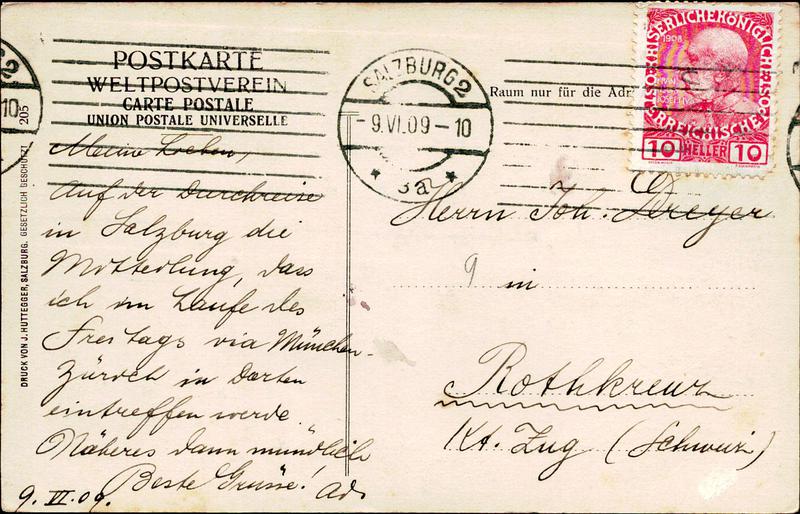 POSTKARTE
WELTPOSTVEREIN
CARTE POSTALE
UNION POSTALE UNIVERSELLE
205
DRUCK VON J. HUTTEGGER, SALZBURG. GESETZLICH GESCHÜTZT
Meine Lieben,
Auf der Durchreise
in Salzburg die
Mitteilung, dass
ich im Laufe des
Freitags via München-
Zürich in Dorten
eintreffen werde.
Näheres dann mündlich
Beste Grüsse! Ad.
9. VI. 09.
SALZBURG 2
-9.VI.09-10
* 3a *
2
10
Raum nur für die Adr
KAISERLICHE KÖNIGLICHE
1908
ÖSTERREICHISCHE POST
10 HELLER 10
Herrn Joh. Dreyer
9 in
Rothkreuz
Kt. Zug (Schweiz)